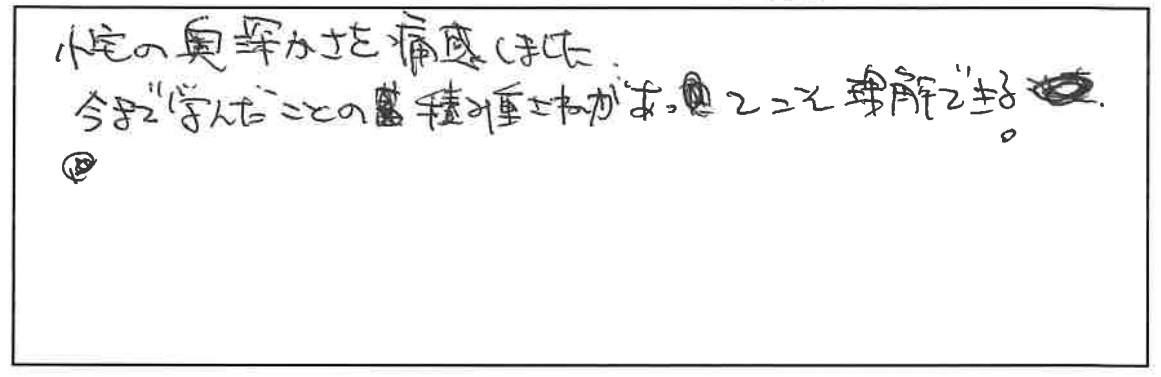 の奥深かさを痛感しました.
今まで学んだことの積み重さねがあってこそ理解できる。